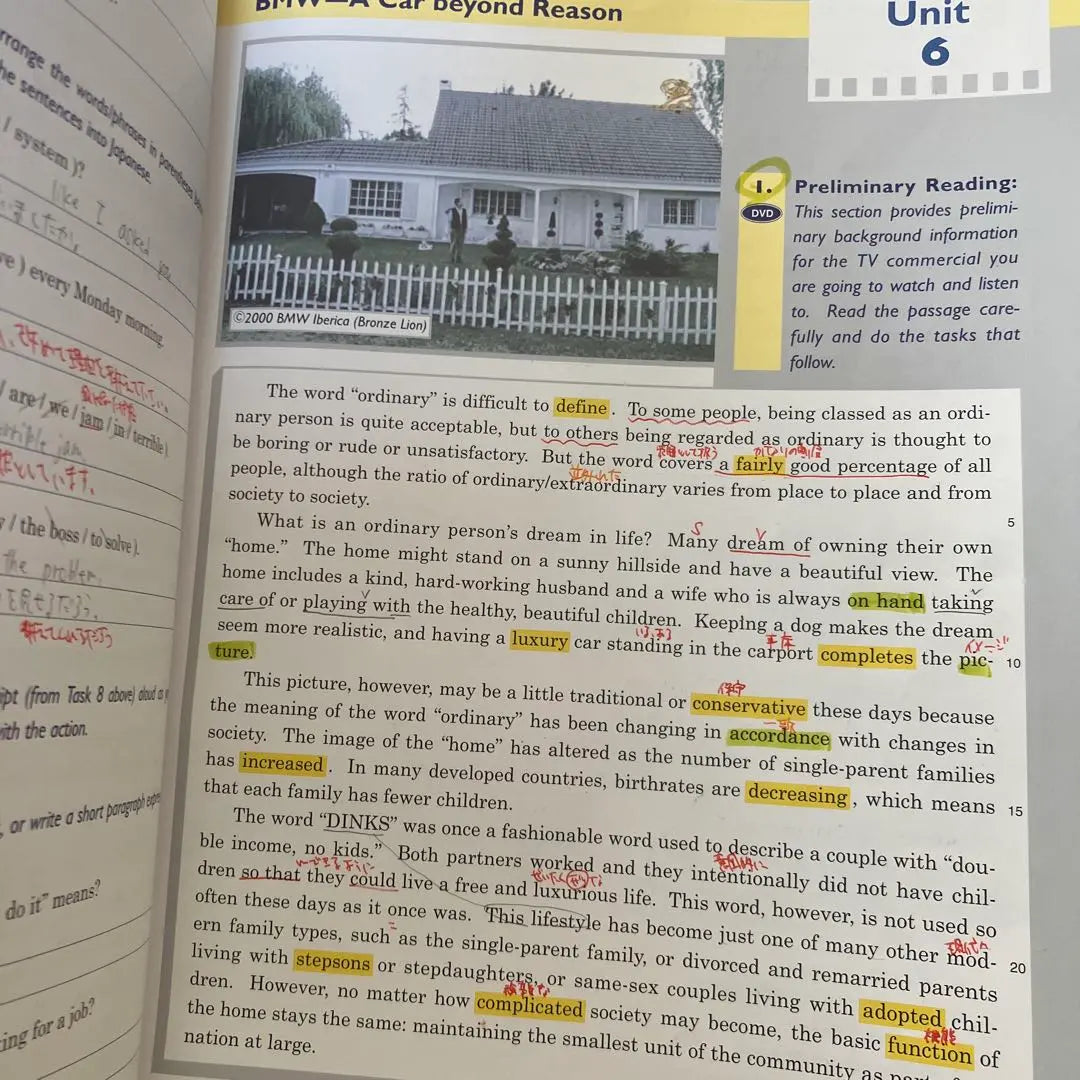 BMW—A Car beyond Reason
Unit
6
rrange the words/phrases in parentheses
he sentences into Japanese.
/ system )?
like I asked you
ve ) every Monday morning.
/ are / we / jam / in / terrible ).
terrible jam
/ the boss / to solve ).
the problem.
ipt (from Task 8 above) aloud as
ith the action.
, or write a short paragraph
do it” means?
ing for a job?
©2000 BMW Iberica (Bronze Lion)
1.
DVD
Preliminary Reading:
This section provides prelimi-
nary background information
for the TV commercial you
are going to watch and listen
to. Read the passage care-
fully and do the tasks that
follow.
The word “ordinary” is difficult to define. To some people, being classed as an ordi-
nary person is quite acceptable, but to others being regarded as ordinary is thought to
be boring or rude or unsatisfactory. But the word covers a fairly good percentage of all
people, although the ratio of ordinary/extraordinary varies from place to place and from
society to society.
5
S
V
What is an ordinary person’s dream in life? Many dream of owning their own
“home.” The home might stand on a sunny hillside and have a beautiful view. The
home includes a kind, hard-working husband and a wife who is always on hand taking
care of or playing with the healthy, beautiful children. Keeping a dog makes the dream
イメージ
seem more realistic, and having a luxury car standing in the carport completes the pic-
10
ture.
保守
This picture, however, may be a little traditional or conservative these days because
一致
the meaning of the word “ordinary” has been changing in accordance with changes in
society. The image of the “home” has altered as the number of single-parent families
has increased. In many developed countries, birthrates are decreasing, which means
15
that each family has fewer children.
The word “DINKS” was once a fashionable word used to describe a couple with “dou-
意図的に
ble income, no kids.” Both partners worked and they intentionally did not have chil-
～できるように
dren so that they could live a free and luxurious life. This word, however, is not used so
often these days as it once was. This lifestyle has become just one of many other mod-
現代
20
ern family types, such as the single-parent family, or divorced and remarried parents
living with stepsons or stepdaughters, or same-sex couples living with adopted chil-
複雑な
dren. However, no matter how complicated society may become, the basic function of
機能
the home stays the same: maintaining the smallest unit of the community as part
nation at large.